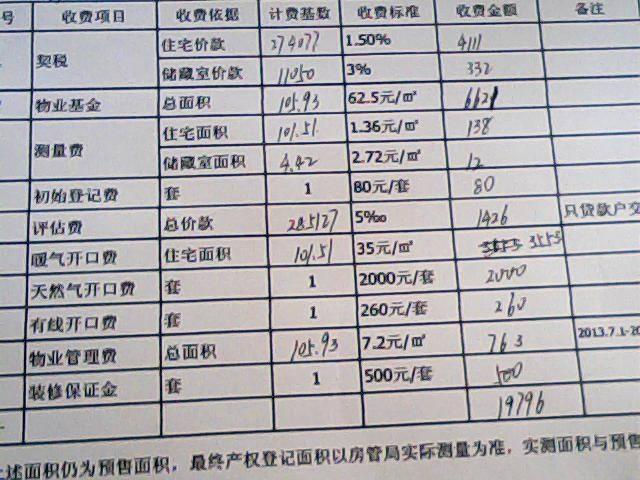 号 收费项目 收费依据 计费基数 收费标准 收费金额 备注
契税 住宅价款 274077 1.50% 4111
储藏室价款 11050 3% 332
物业基金 总面积 105.93 62.5元/㎡ 6621
测量费 住宅面积 101.51 1.36元/㎡ 138
储藏室面积 4.42 2.72元/㎡ 12
初始登记费 套 1 80元/套 80
评估费 总价款 285127 5‰ 1426 只贷款户交
暖气开口费 住宅面积 101.51 35元/㎡ 3553
天然气开口费 套 1 2000元/套 2000
有线开口费 套 1 260元/套 260
物业管理费 总面积 105.93 7.2元/㎡ 763 2013.7.1-20
装修保证金 套 1 500元/套 500
19796
上述面积仍为预售面积，最终产权登记面积以房管局实际测量为准，实测面积与预售